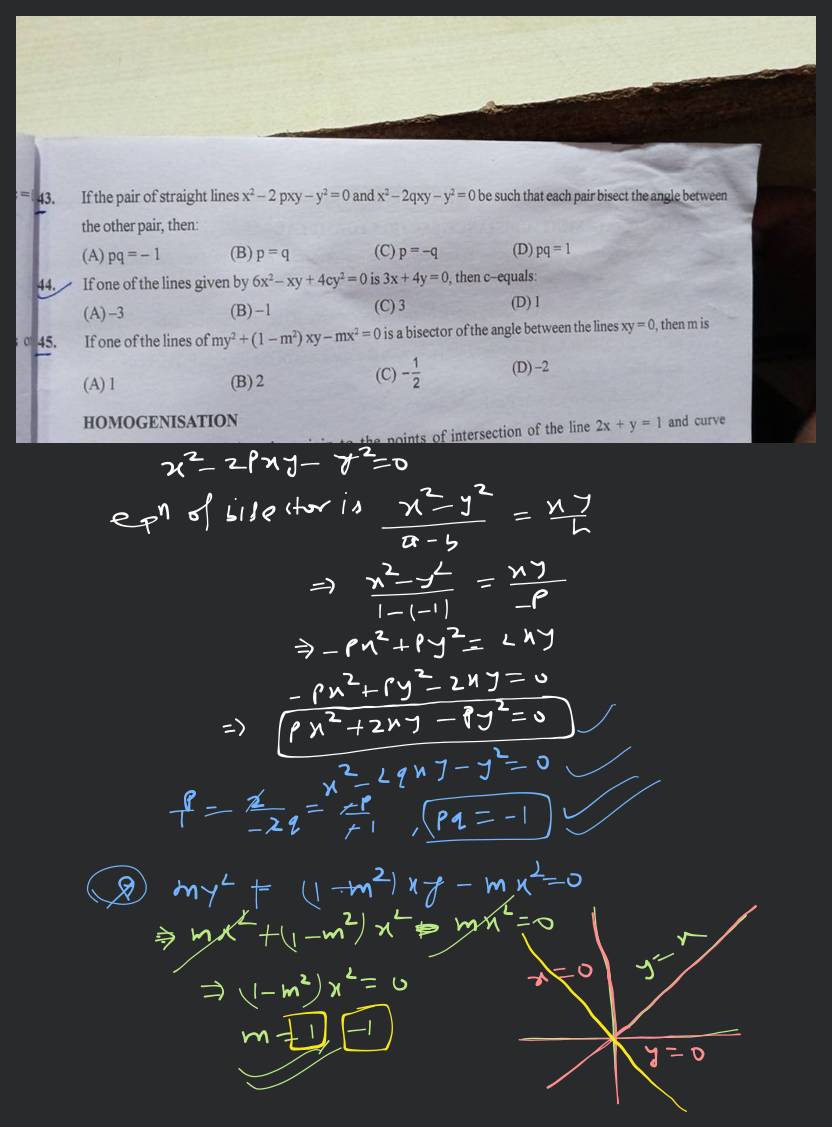 43. If the pair of straight lines x² – 2 pxy – y² = 0 and x² – 2qxy – y² = 0 be such that each pair bisect the angle between
the other pair, then:
(A) pq = – 1 (B) p = q (C) p = –q (D) pq = 1
44. If one of the lines given by 6x² – xy + 4cy² = 0 is 3x + 4y = 0, then c–equals:
(A) –3 (B) –1 (C) 3 (D) 1
45. If one of the lines of my² + (1 – m²) xy – mx² = 0 is a bisector of the angle between the lines xy = 0, then m is
(A) 1 (B) 2 (C) –1/2 (D) –2
HOMOGENISATION
the points of intersection of the line 2x + y = 1 and curve
x² – 2pxy – y² = 0
eqⁿ of bisector is (x² – y²)/(a – b) = xy/h
⇒ (x² – y²)/(1 – (–1)) = xy/–p
⇒ – px² + py² = 2xy
– px² + py² – 2xy = 0
⇒ px² + 2xy – py² = 0
x² – 2qxy – y² = 0
p/1 = 2/–2q = –p/–1 , pq = –1
my² + (1 – m²) xy – mx² = 0
⇒ mx² + (1 – m²) x² – mx² = 0
x = 0 y = x
⇒ (1 – m²) x² = 0
m = 1 –1
y = 0